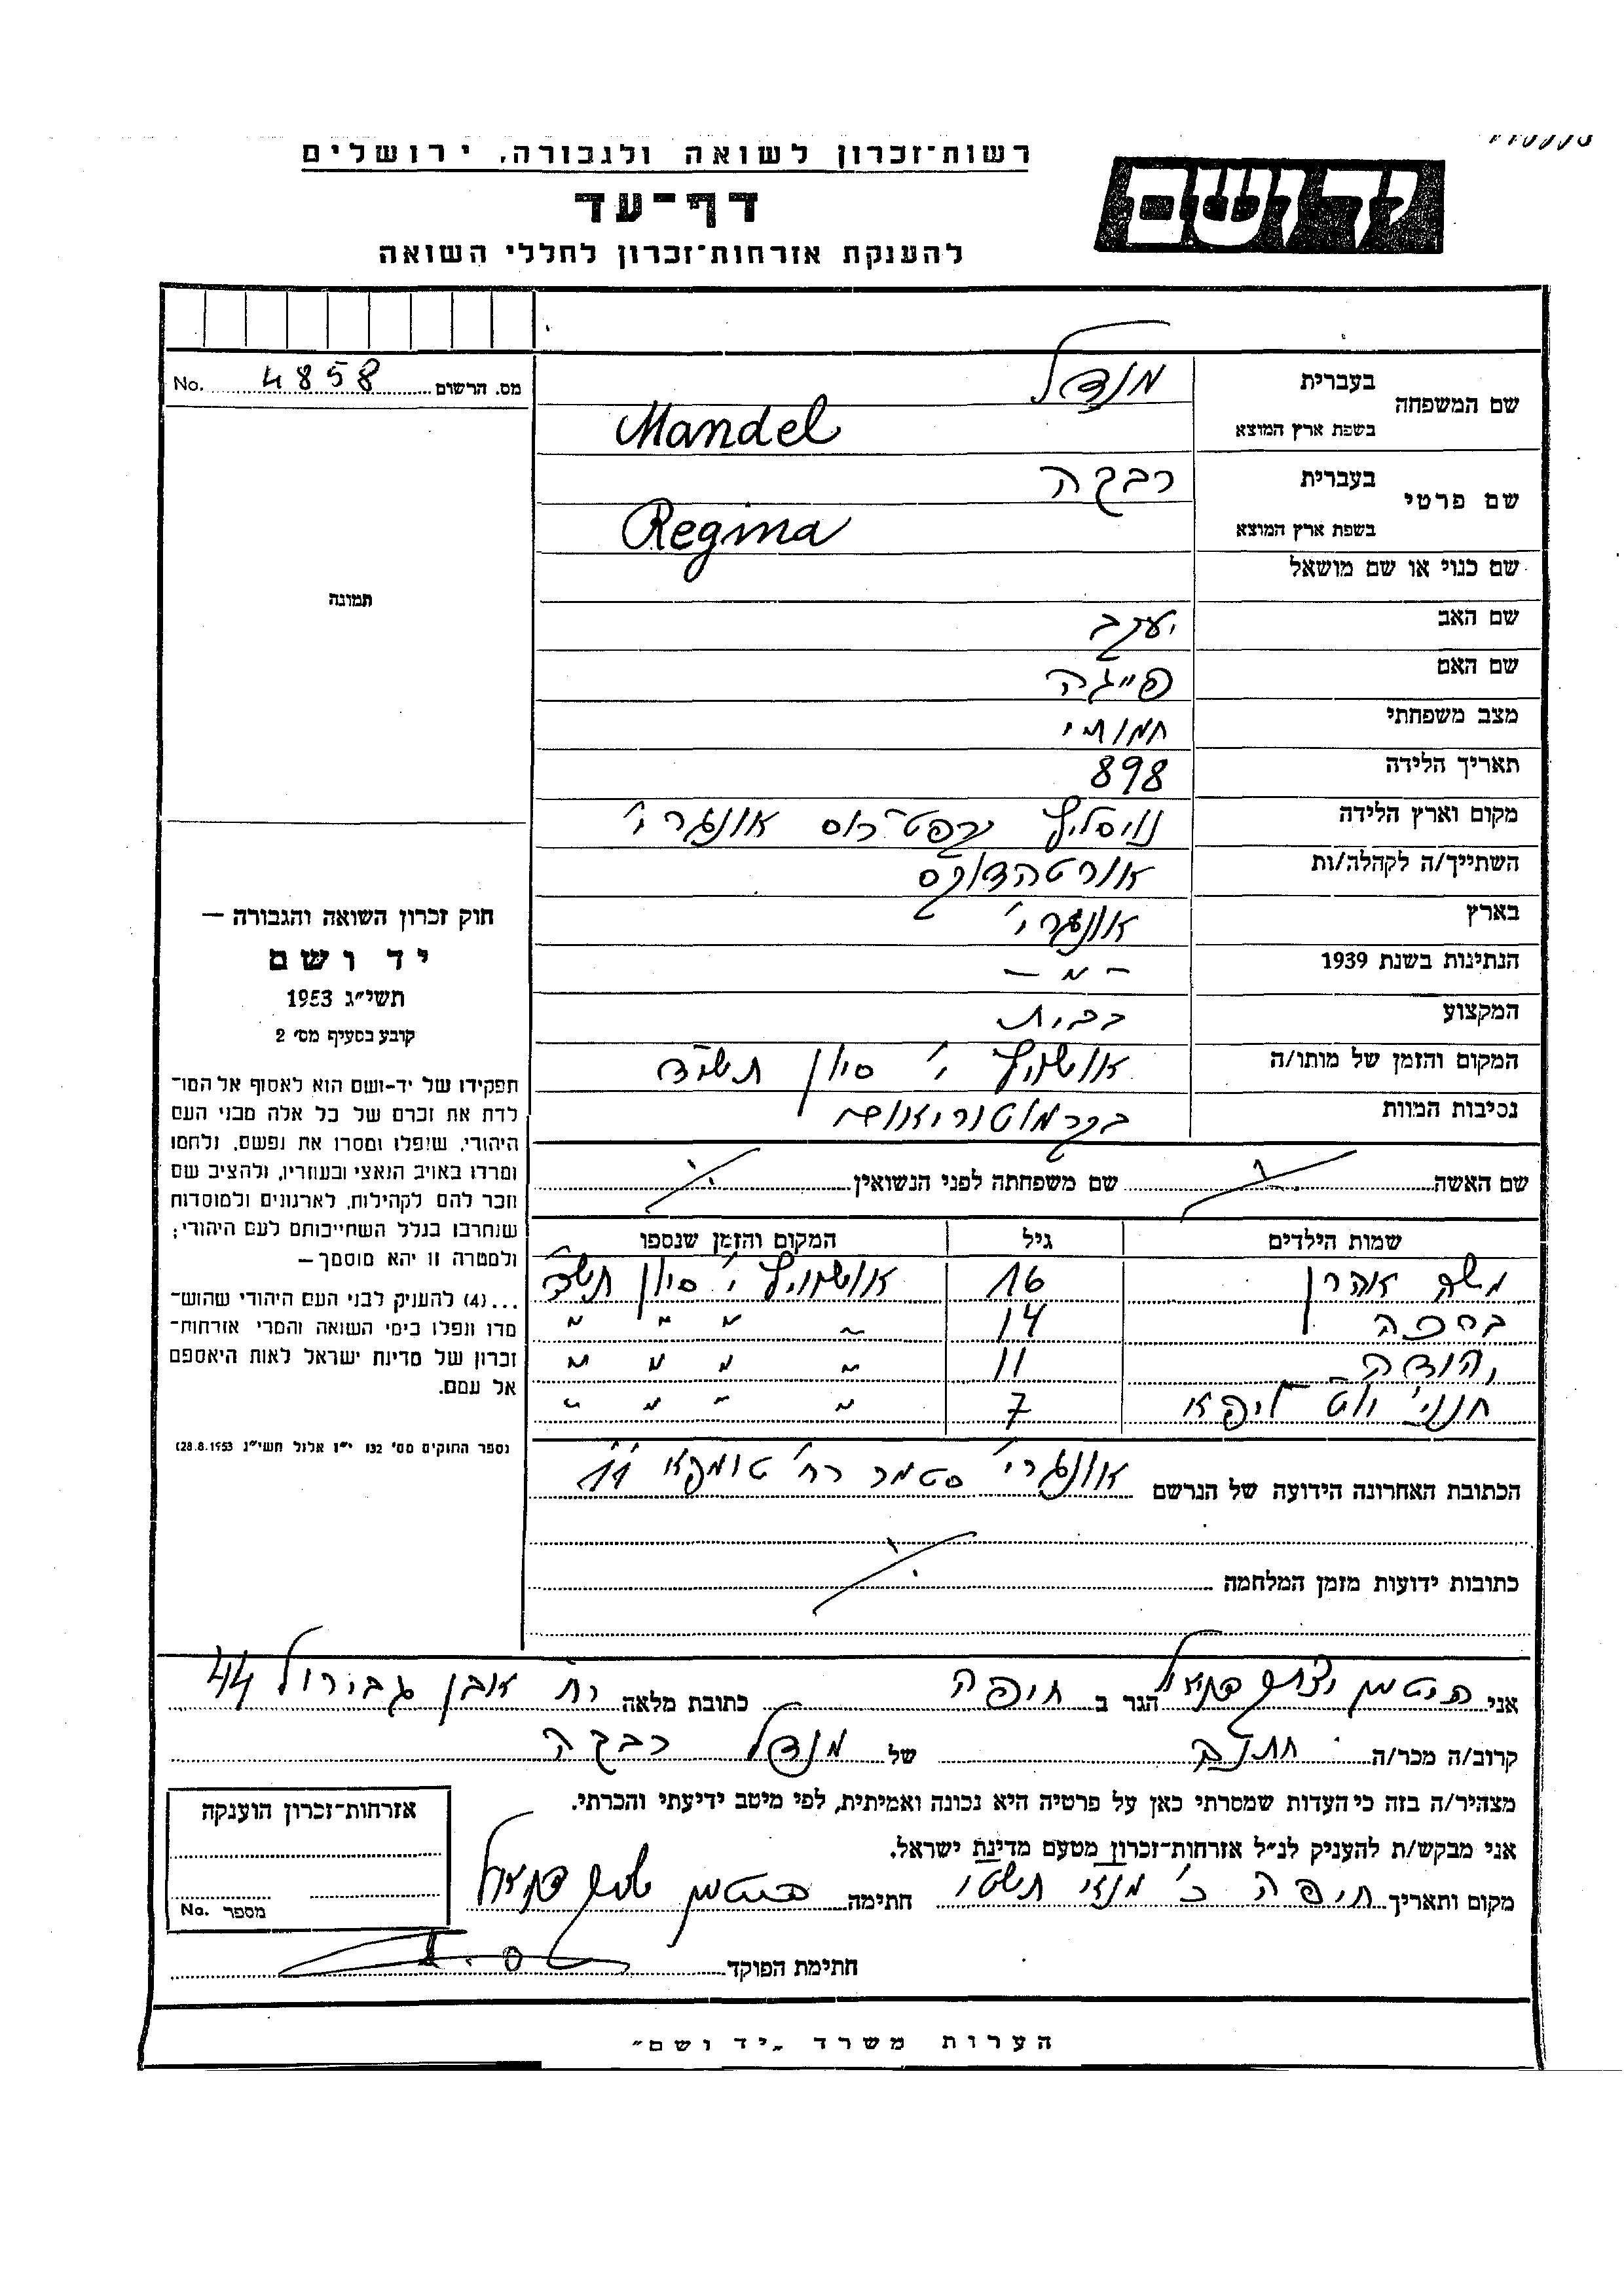 רשות־זכרון לשואה ולגבורה, ירושלים
יד ושם
דף־עד
להענקת אזרחות־זכרון לחללי השואה
No. 4858 מס. הרשום
שם המשפחה בעברית מנדל
בשפת ארץ המוצא Mandel
שם פרטי בעברית רבקה
בשפת ארץ המוצא Regina
שם כנוי או שם מושאל
שם האב יעקב
שם האם פייגה
מצב משפחתי
תאריך הלידה 898
מקום וארץ הלידה אונגרי'
השתייך/ה לקהלה/ות אורטהדוקס
בארץ אונגרי'
הנתינות בשנת 1939 – " –
המקצוע בבית
המקום והזמן של מותו/ה אושויץ י' סיון תש"ד
נסיבות המוות בקרמטוריאום
שם האשה
שם משפחתה לפני הנשואין
שמות הילדים גיל המקום והזמן שנספו
משה אהרן 16 אושויץ י' סיון תש"ד
14 " " " "
יהודה 11 " " " "
7 " " " "
הכתובת האחרונה הידועה של הנרשם אונגרי' סטמר רח' טומפא 11
כתובות ידועות מזמן המלחמה
תמונה
חוק זכרון השואה והגבורה —
יד ושם
תשי״ג 1953
קובע בסעיף מס׳ 2
תפקידו של יד-ושם הוא לאסוף אל המו־
לדת את זכרם של כל אלה מבני העם
היהודי, שנפלו ומסרו את נפשם, נלחמו
ומרדו באויב הנאצי ובעוזריו, ולהציב שם
וזכר להם לקהילות, לארגונים ולמוסדות
שנחרבו בגלל השתייכותם לעם היהודי;
ולמטרה זו יהא מוסמך—
...(4) להעניק לבני העם היהודי שהוש־
מדו ונפלו בימי השואה והמרי אזרחות־
זכרון של מדינת ישראל לאות היאספם
אל עמם.
(ספר החוקים מס׳ 132 י״ז אלול תשי״ג 28.8.1953)
אני הגר ב חיפה כתובת מלאה רח' אבן גבירול 44
קרוב/ה מכר/ה חתנה של מנדל רבקה
מצהיר/ה בזה כי העדות שמסרתי כאן על פרטיה היא נכונה ואמיתית, לפי מיטב ידיעתי והכרתי.
אני מבקש/ת להעניק לנ״ל אזרחות־זכרון מטעם מדינת ישראל.
מקום ותאריך חיפה חתימה
חתימת הפוקד
אזרחות־זכרון הוענקה
מספר No.
הערות משרד „יד ושם״